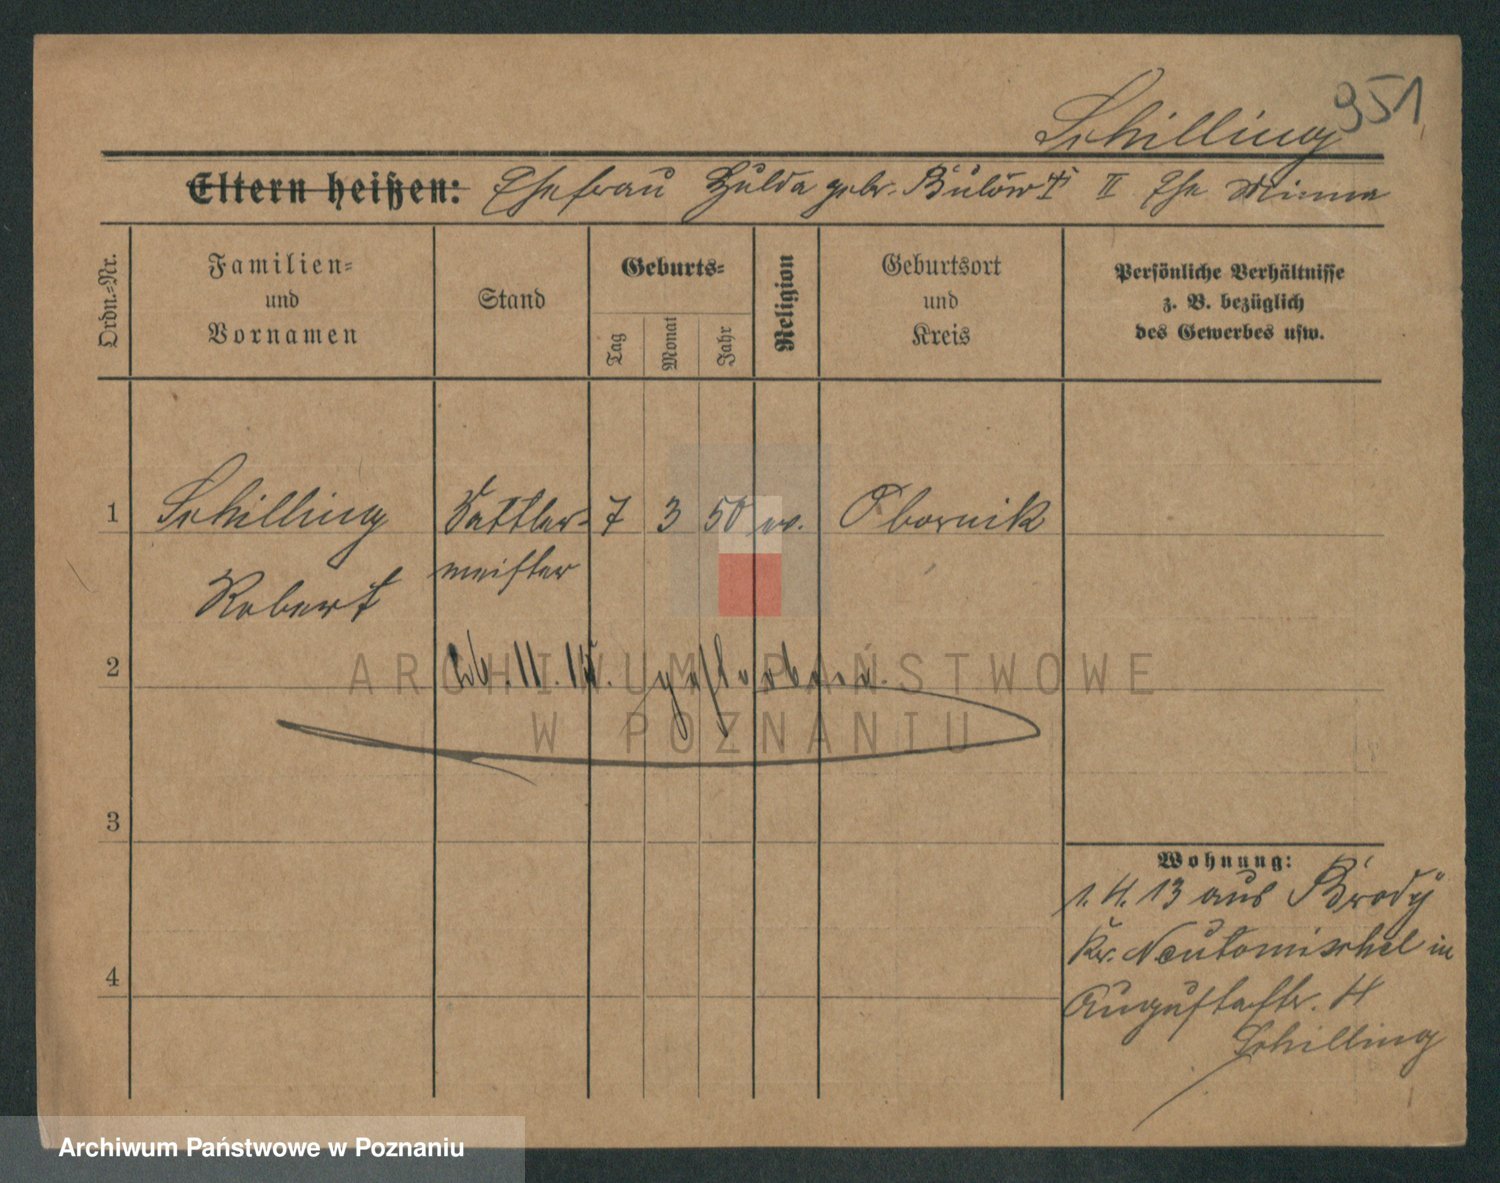 951
Schilling
Eltern heißen: Ehefrau Hulda geb. Bülow † II Ehe Minna
Ordn.-Nr.
Familien-
und
Vornamen
Stand
Geburts-
Tag
Monat
Jahr
Religion
Geburtsort
und
Kreis
Persönliche Verhältnisse
z. B. bezüglich
des Gewerbes usw.
1 Schilling Sattler- 7 3 50 ev. Obornik
meister
Robert
2
11. gestorben.
ARCHIWUM PAŃSTWOWE
W POZNANIU
3
Wohnung:
1. 4. 13 aus Brody
Kr. Neutomischel in
4
Augustastr. 4
Schilling
Archiwum Państwowe w Poznaniu